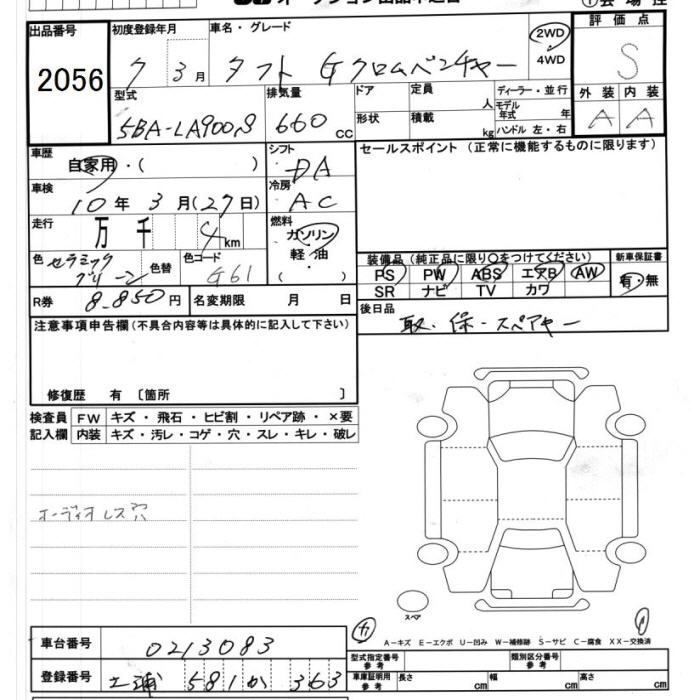 出品番号
2056
初度登録年月
7 3月
車名・グレード
タフト Gクロムベンチャー
2WD
・
4WD
評価点
S
型式
5BA-LA900S
排気量
660 cc
ドア
形状
定員
人
積載
kg
ディーラー・並行
モデル年式 年
ハンドル 左・右
外装 内装
A A
車歴
自家用・( )
シフト
DA
セールスポイント (正常に機能するものに限ります)
車検
10年3月(27日)
冷房
AC
走行
万 千 4 km
燃料
ガソリン
軽・油
( )
色
セラミック
グリーン
色替
色コード
G61
装備品(純正品に限り○をつけてください)
新車保証書
PS PW ABS エアB AW
SR ナビ TV カワ
有・無
R券
8,850円
名変期限 月 日
後日品
取・保・スペアキー
注意事項申告欄(不具合内容等は具体的に記入して下さい)
修復歴 有 〔箇所 〕
検査員
記入欄
FW キズ・飛石・ヒビ割・リペア跡・×要
内装 キズ・汚レ・コゲ・穴・スレ・キレ・破レ
オーディオレス穴
スペア
A-キズ E-エクボ U-凹み W-補修跡 S-サビ C-腐食 XX-交換済
車台番号
0213083
登録番号
土浦 581 か 363
型式指定番号
参考
類別区分番号
参考
車庫証明用
参考
長さ cm 幅 cm 高さ cm